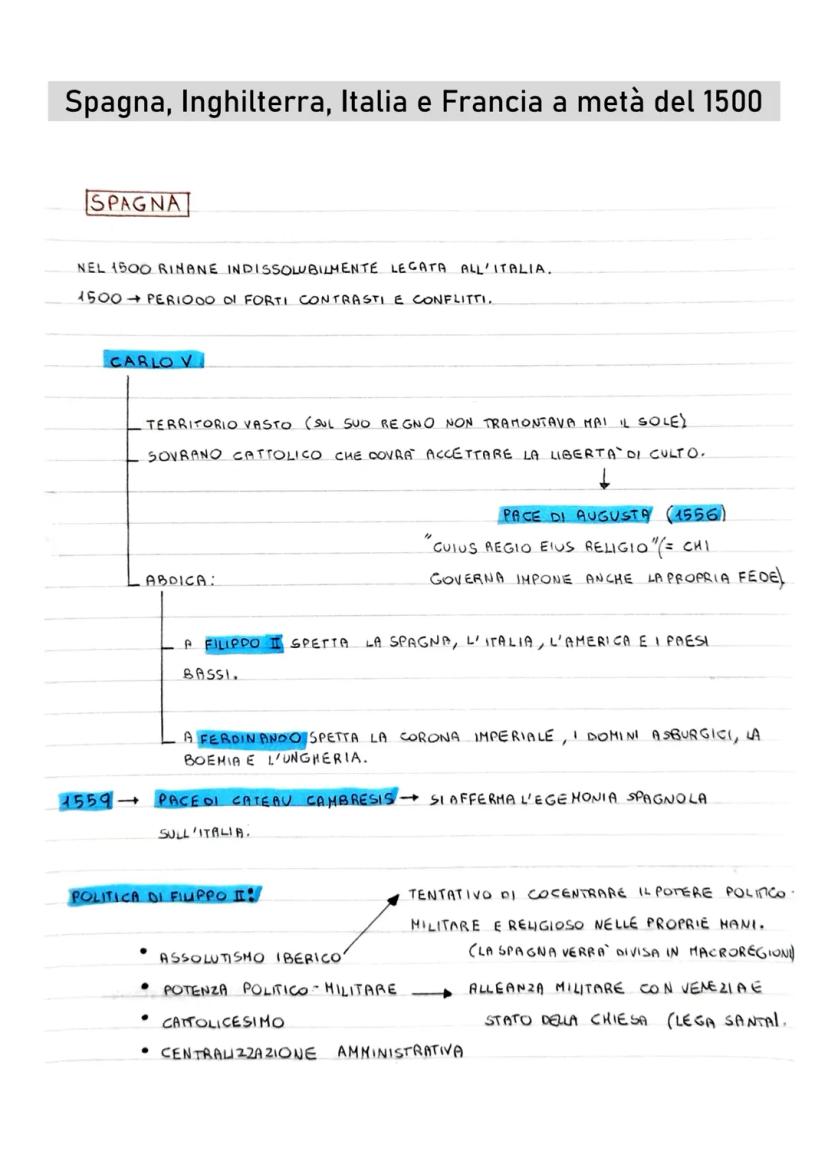 Spagna, Inghilterra, Italia e Francia a metà del 1500
SPAGNA
NEL 1500 RIMANE INDISSOLUBILMENTE LEGATA ALL'ITALIA.
1500 → PERIODO DI FORTI CONTRASTI E CONFLITTI.
CARLO V
TERRITORIO VASTO (SUL SUO REGNO NON TRAMONTAVA MAI IL SOLE)
SOVRANO CATTOLICO CHE DOVRA' ACCETTARE LA LIBERTA' DI CULTO.
↓
PACE DI AUGUSTA (1556)
"CUIUS REGIO EIUS RELIGIO" (= CHI
GOVERNA IMPONE ANCHE LA PROPRIA FEDE)
ABDICA:
A FILIPPO II SPETTA LA SPAGNA, L'ITALIA, L'AMERICA E I PAESI
BASSI.
A FERDINANDO SPETTA LA CORONA IMPERIALE, I DOMINI ASBURGICI, LA
BOEMIA E L'UNGHERIA.
1559 → PACE DI CATEAU CAMBRESIS → SI AFFERMA L'EGEMONIA SPAGNOLA
SULL'ITALIA.
POLITICA DI FILIPPO II:
TENTATIVO DI COCENTRARE IL POTERE POLITICO-
MILITARE E RELIGIOSO NELLE PROPRIE MANI.
(LA SPAGNA VERRA' DIVISA IN MACROREGIONI)
• ASSOLUTISMO IBERICO
• POTENZA POLITICO-MILITARE → ALLEANZA MILITARE CON VENEZIA E
STATO DELLA CHIESA (LEGA SANTA).
• CATTOLICESIMO
• CENTRALIZZAZIONE AMMINISTRATIVA